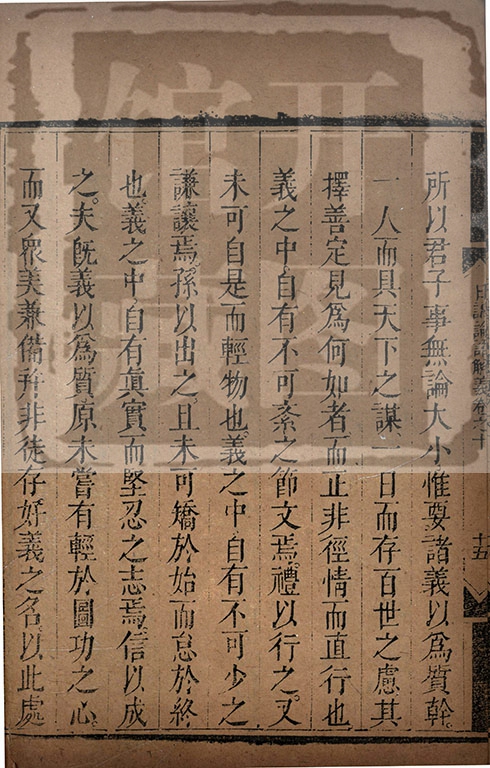 所以君子事無論大小惟要諸義以爲質幹。
一人而具天下之謀一日而存百世之慮其
擇善定見爲何如者而正非徑情而直行也
義之中自有不可紊之節文焉禮以行之又
未可自是而輕物也義之中自有不可少之
謙讓焉孫以出之且未可矯於始而怠於終
也義之中自有眞實而堅忍之志焉信以成
之夫旣義以爲質原未嘗有輕於圖功之心
而又眾美兼備幷非徒存好義之名以此處
解義卷之十
十五
開圖
館藏